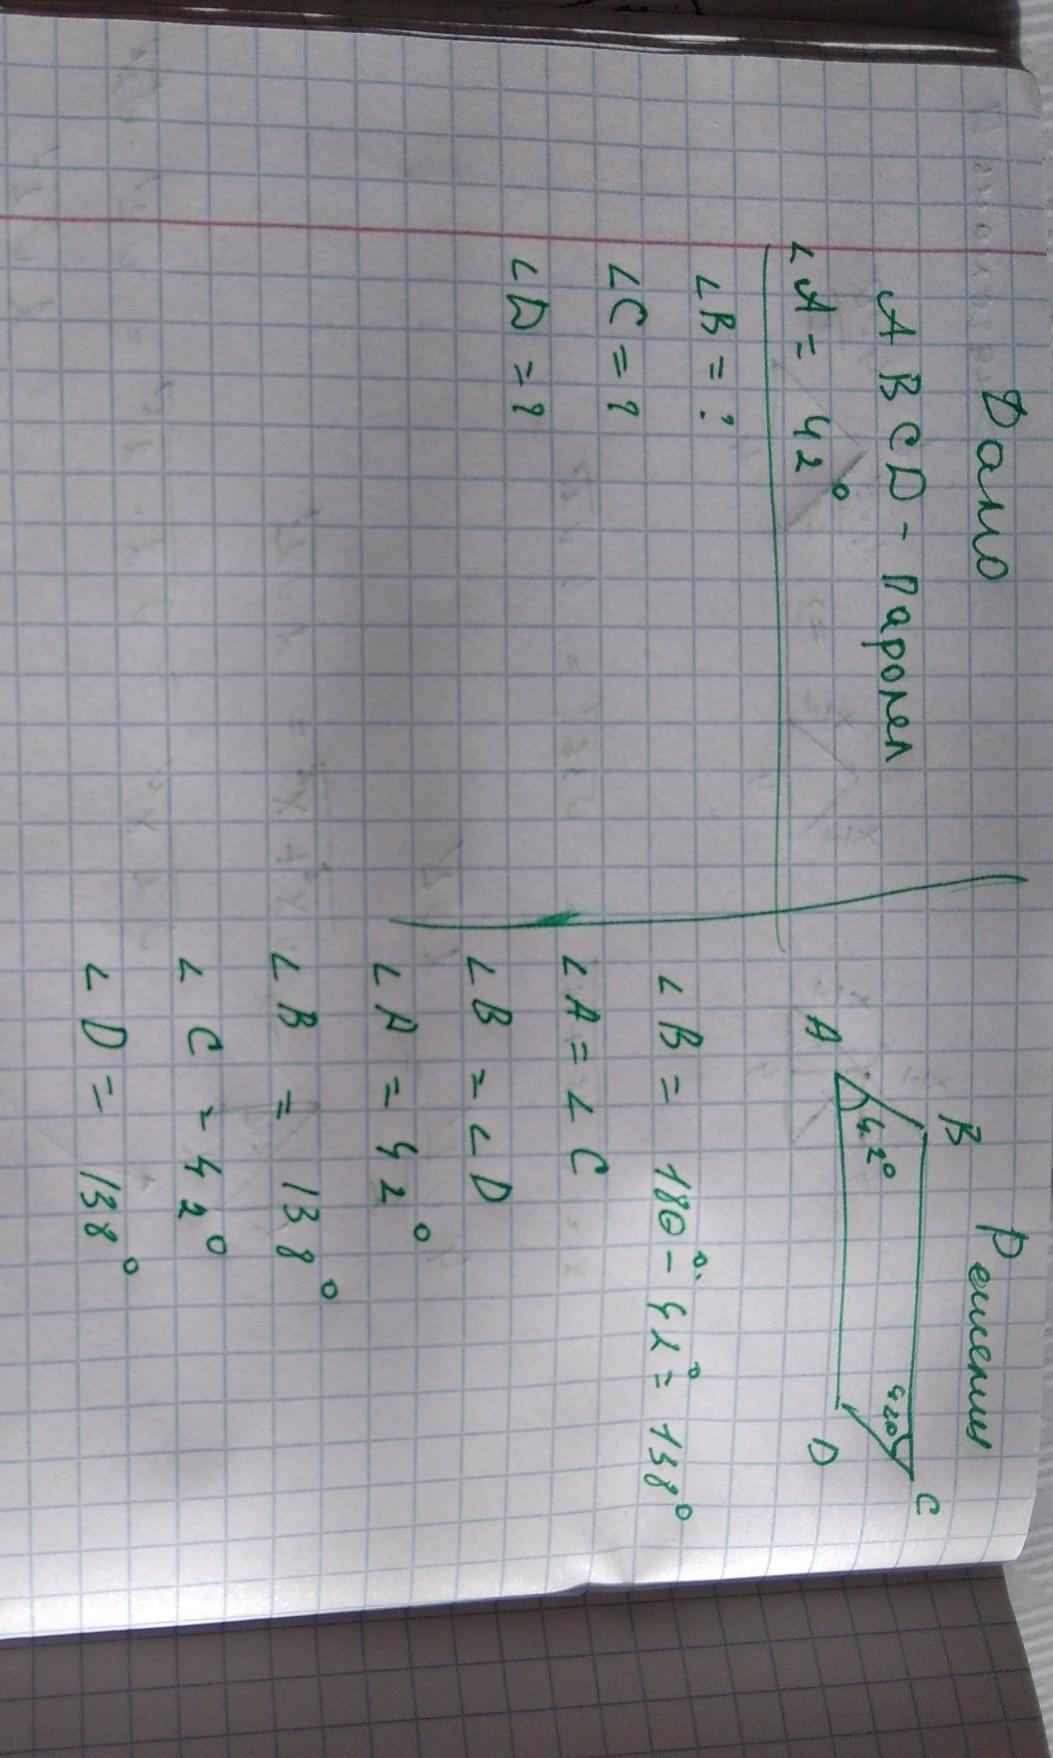 Дано
ABCD - Паролел
∠A = 42°
∠B = ?
∠C = ?
∠D = ?
Решения
B
C
42°
42°
A
D
∠B = 180° - 42° = 138°
∠A = ∠C
∠B = ∠D
∠A = 42°
∠B = 138°
∠C = 42°
∠D = 138°